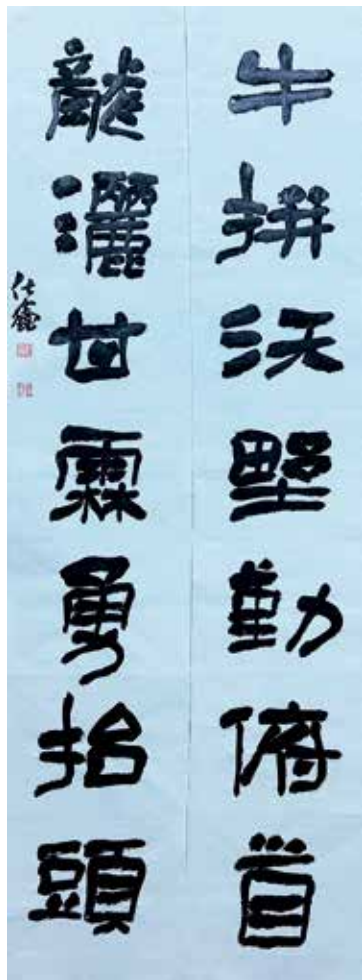 牛拼沃野勤俯首
龍灑甘霖勇抬頭